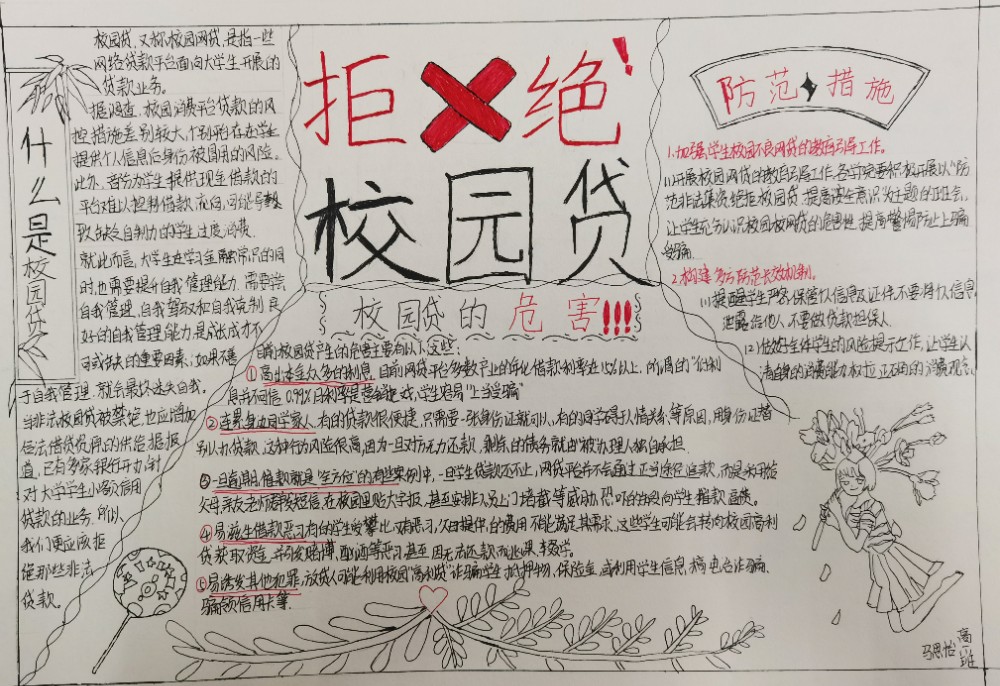 拒绝!
校园贷
什么是校园贷
校园贷,又称校园网贷,是指一些
网络贷款平台面向大学生开展的
贷款业务。
据调查,校园消费平台贷款的风
控措施差别较大,个别平台存在学生
提供个人信息后身份被冒用的风险。
此外,部分为学生提供现金借款的
平台难以控制借款流向,可能导致
缺乏自制力的学生过度消费。
就此而言,大学生在学习金融常识的同
时,也需要提升自我管理能力。需要
自我管理、自我驾驭和自我克制,良
好的自我管理能力,是成长成才不
可或缺的重要因素;如果不善
于自我管理,就会最终迷失自我。
当非法校园贷被禁绝,也应增加
合法借贷费用的供给,据报
道,已有多家银行开办针
对大学学生小额信用
贷款的业务。所以,
我们更应该拒
绝那些非法
贷款。
校园贷的危害!!!
目前校园贷产生的危害主要有以下这些:
①高出本金众多倍的利息,目前网贷平台多数产业的年化借款利率在15%以上,所谓的“低利
息并可信0.99%日利率是营销
游戏,学生容易“上当受骗”
②连累身边同学家人,有的贷款很便捷,只需要一张身份证就可以,有的同学碍于人情关系等原因,用身份证替
别人办贷款,这种行为风险很高,因为一旦对方无力还款,剩余的债务就由被办理人独自承担。
③一旦逾期,借款就是“全方位”的
案例中,一旦学生贷款还不上,网贷平台并不会通过正当途径追款,而是采用给
父母亲友老师群发短信,在校园里贴大字报,甚至安排人员上门堵截等威胁恐吓的手段向学生借款
④易滋生借款恶习,有的学生有攀比
恶习,父母提供的费用不能满足其需求,这些学生可能会转向校园高利
贷获取资金,并引发赌博、酗酒等恶习,甚至因无法还款而逃课、辍学。
⑤易诱发其他犯罪,放贷人可能利用校园“高利贷”诈骗学生抵押物、保险金,或利用学生信息搞电台诈骗、
骗领信用卡等。
防范措施
1.加强学生校园不良网贷的教育引导工作。
(1)开展校园网贷的教育引导工作,各学院要积极开展以“防
范非法集资,拒绝校园贷,提高安全意识”为主题的班会,
让学生充分认识校园网贷的危害性,提高警惕,防止上当
受骗。
2.构建多方防范长效机制。
(1)提醒学生严格保管个人信息及证件,不要将个人信息
泄露给他人,不要做贷款担保人。
(2)做好全体学生的风险提示工作,让学生认
清自身的消费能力,树立正确的消费观念。
高一班
马思怡